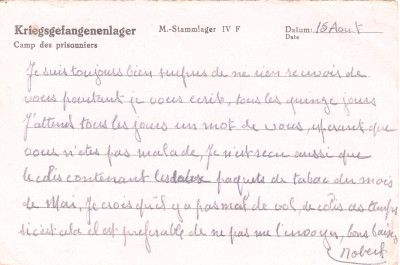 Kriegsgefangenenlager M.-Stammlager IV F Datum: 15 Aout
Camp des prisonniers Date
Je suis toujours bien surpris de ne rien recevoir de
vous pourtant je vous ecrit, tous les quinze jours
J'attend tous les jours un mot de vous, esperant que
vous n'etes pas malade, Je n'ai recu aussi que
le colis contenant les deux paquets de tabac du mois
de Mai, Je crois qu'il y a pas mal de vol, de colis ces temps
si c'est cela il est preferable de ne pas me l'envoyer, bons baisers
Robert